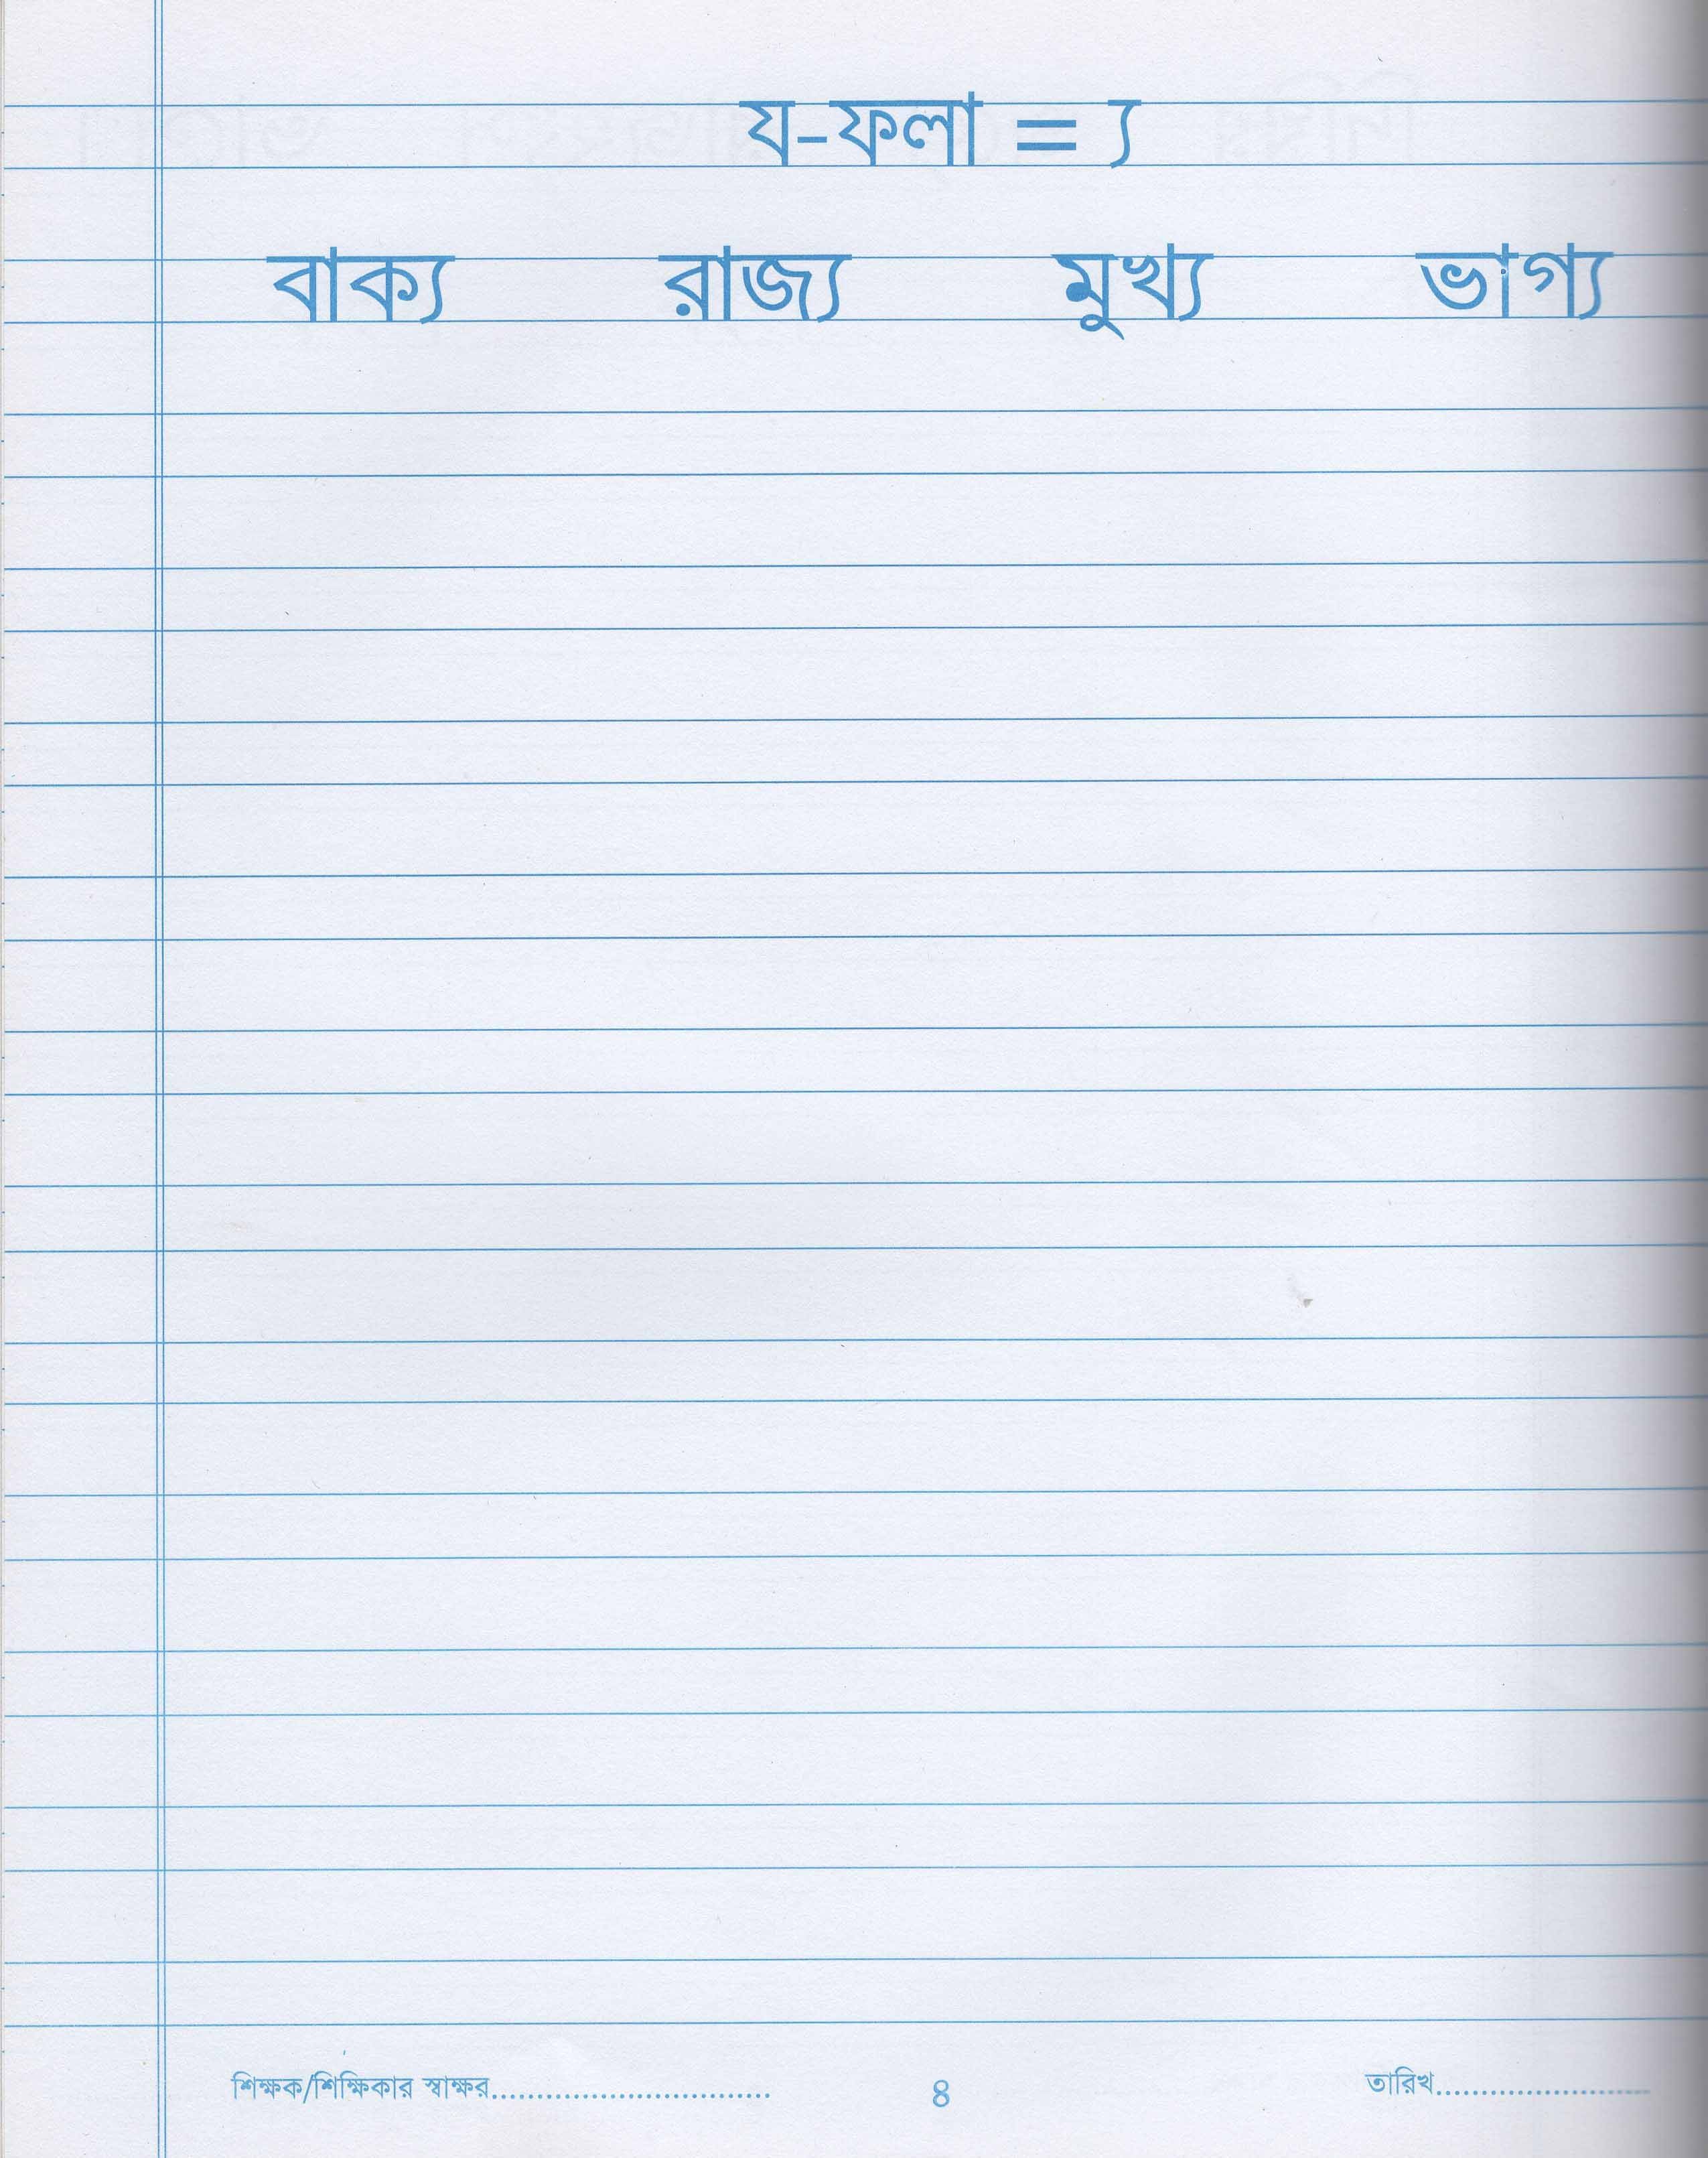 য-ফলা = ্য
বাক্য রাজ্য মুখ্য ভাগ্য
শিক্ষক/শিক্ষিকার স্বাক্ষর............................... ৪ তারিখ........................